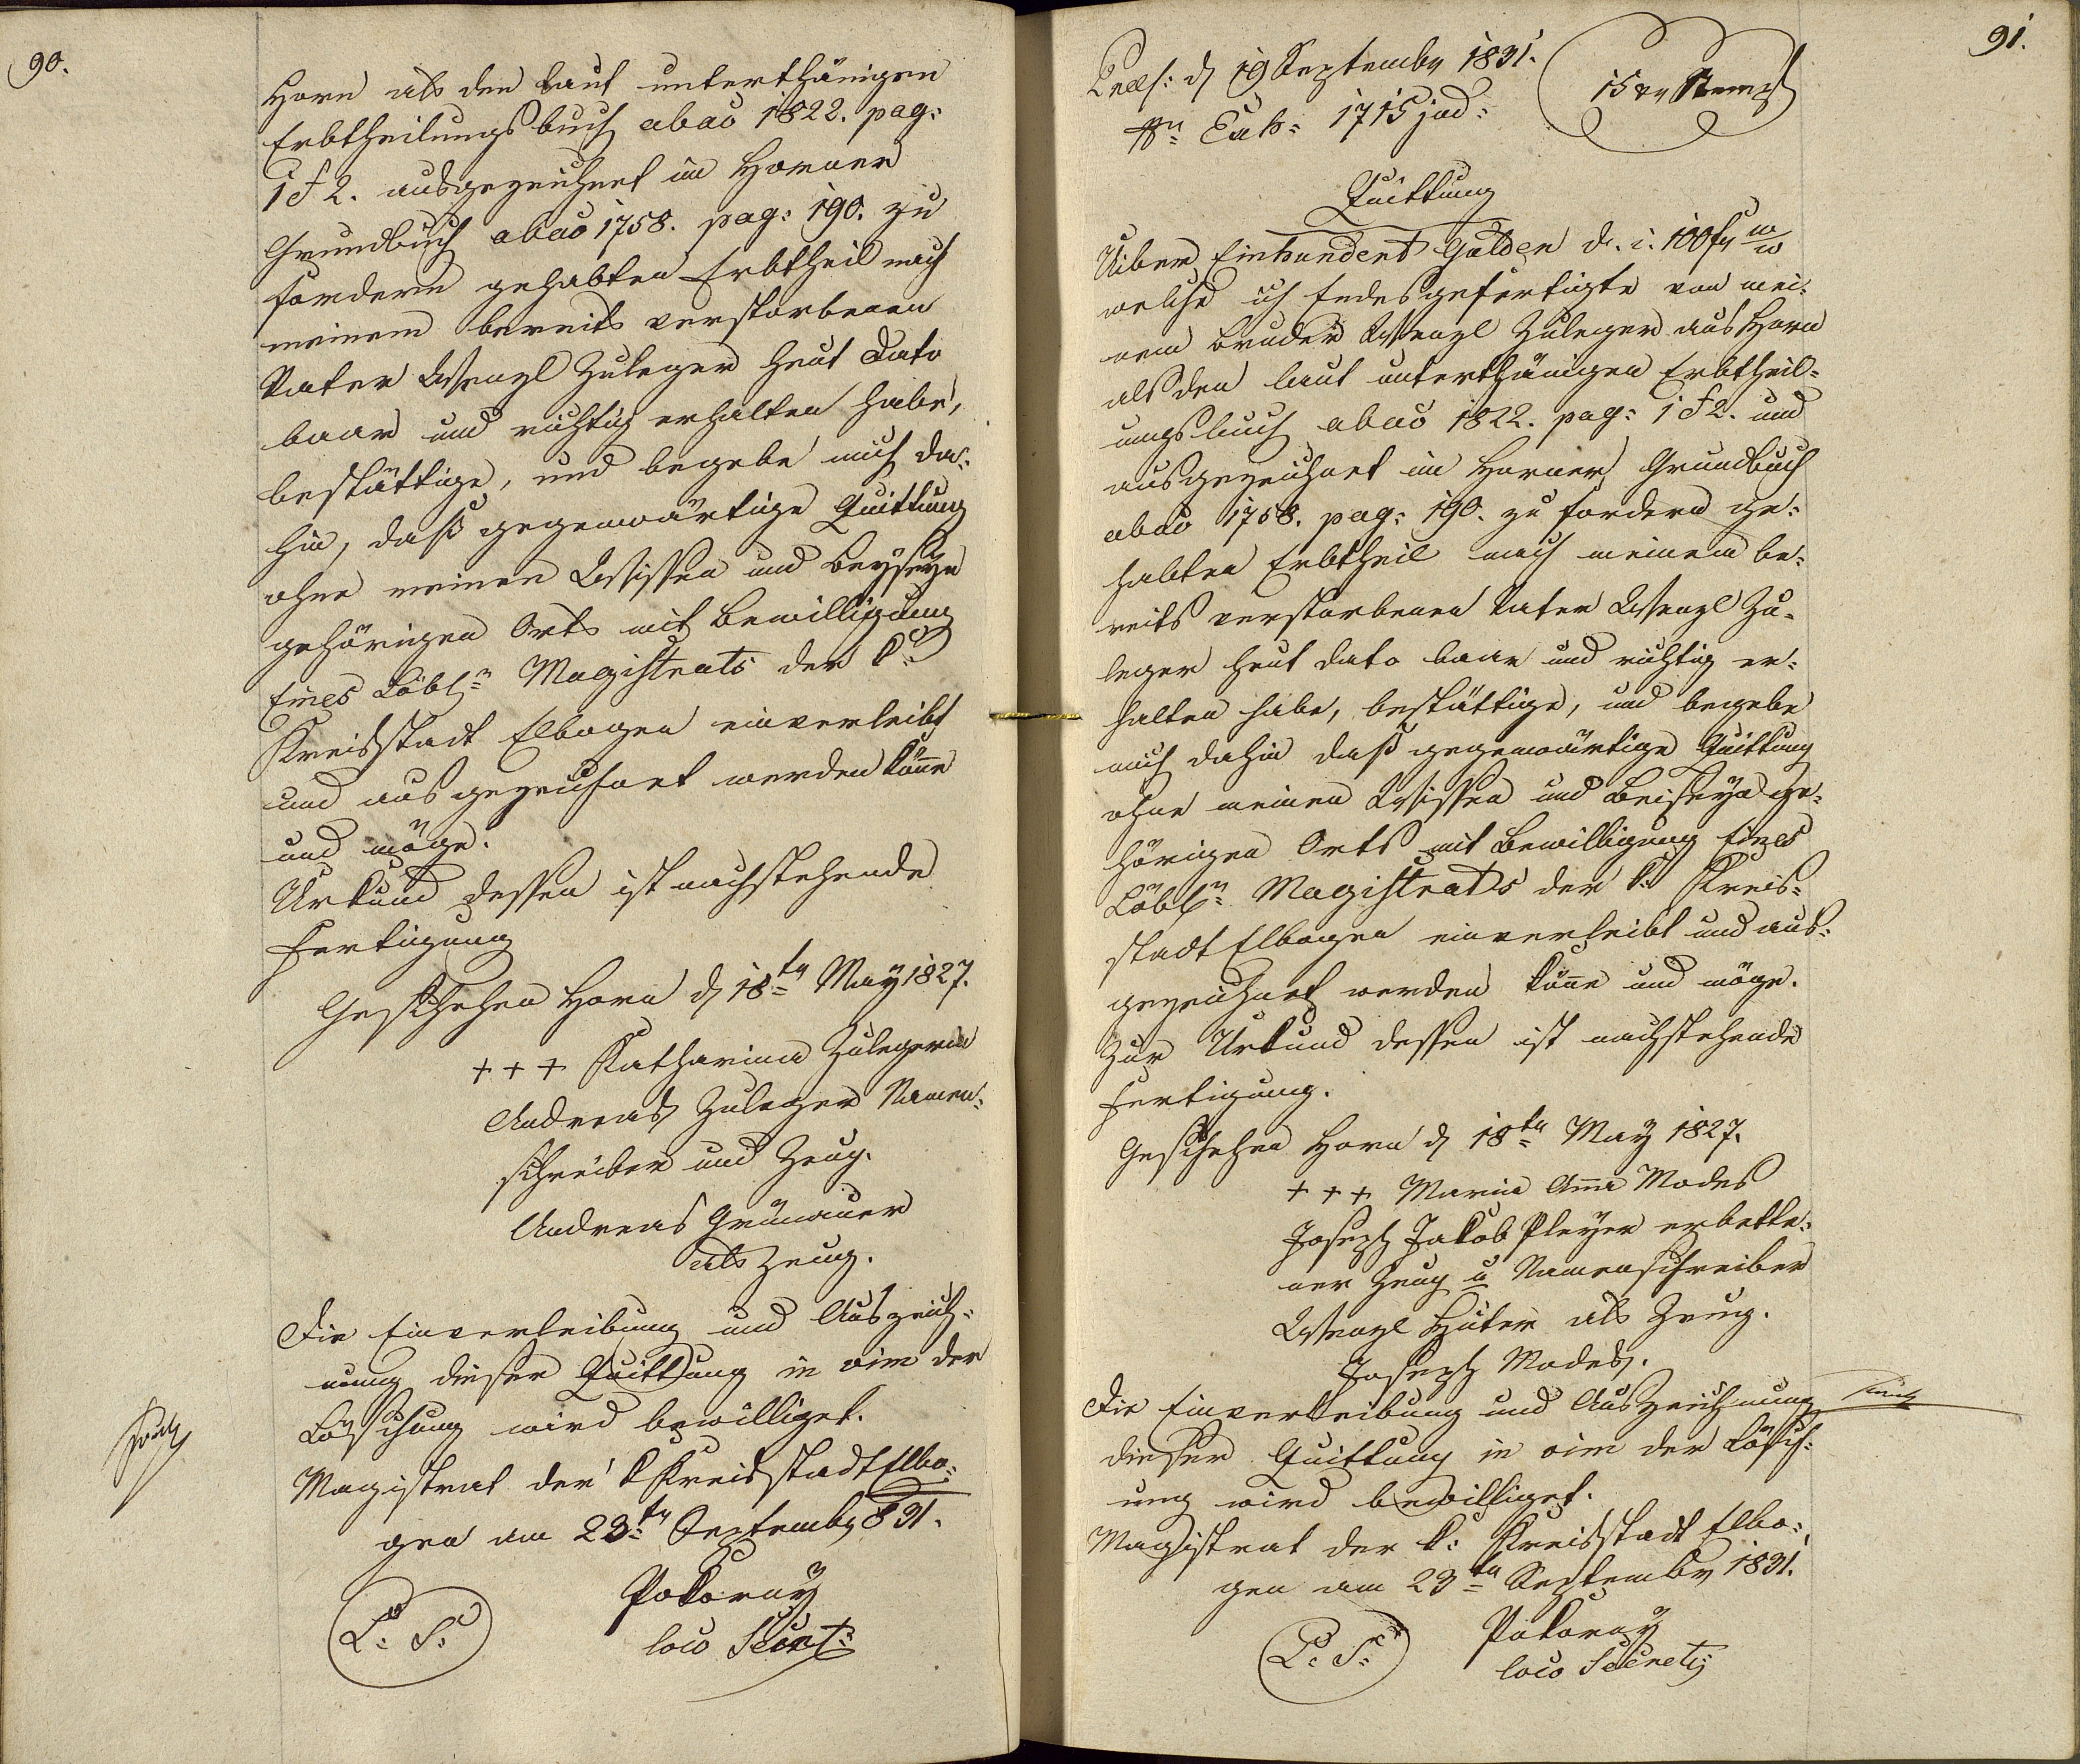 90.
Horn als den laut unterthänigen
Erbtheilungsbuch abao 1822. pag:
1 & 2. ausgezeichnet im Horner
Grundbuch abao 1758. pag: 190. zu
fordern gehabten Erbtheil nach
meinem bereits verstorbenen
Vater Wenzl Zuleger heut dato
baar und richtig erhalten habe,
bestättige, und begebe mich da:
hin, daß gegenwärtige Quittung
ohne meinen Wissen und Beyseyn
gehörigen Orts mit Bewilligung
Eines Löbln Magistrats der k:
Kreisstadt Elbogen einverleibt
und ausgezeichnet werden könne
und möge.
Urkund dessen ist nachstehende
Fertigung
Geschehen Horn d 18ten May 1827.
+ + + Katharina Zulegerin
Andreas Zuleger Namen:
schreiber und Zeug.
Andreas Grünauer
als Zeug.
Die Einverleibung und Auszeich:
nung dieser Quittung in vim der
Löschung wird bewilliget.
Magistrat der k Kreisstadt Elbo:
gen am 23ten Septembr 831.
Pokorny
L: S: loco Secret:
91.
Praes: d 19 Septembr 1831.
15 xr Stempl
Nr Exh: 1715 jud:
Quittung
Uiber Einhundert Gulden d. i. 100 fr W W
welche ich Endesgefertigte von mei:
nem Bruder Wenzl Zuleger aus Horn
als den laut unterthänigen Erbtheil:
ungsbuch abao 1822. pag: 1 & 2. und
ausgezeichnet im Horner Grundbuch
abao 1758. pag: 190. zu fordern ge:
habten Erbtheil nach meinem be:
reits verstorbenen Vater Wenzl Zu:
leger heut dato baar und richtig er:
halten habe, bestättige, und begebe
mich dahin daß gegenwärtige Quittung
ohne meinen Wissen und Beiseyn ge:
hörigen Orts mit Bewilligung Eines
Löbln Magistrats der k: Kreis:
stadt Elbogen einverleibt und aus:
gezeichnet werden könne und möge.
Zur Urkund dessen ist nachstehende
Fertigung.
Geschehen Horn d 18ten May 1827.
+ + + Maria Anna Modes
Joseph Jakob Pleyer erbette:
ner Zeug u Namenschreiber
Wenzl Hüter als Zeug.
Joseph Modes.
Die Einverleibung und Auszeichnung
dieser Quittung in vim der Lösch:
ung wird bewilliget.
Magistrat der k: Kreisstadt Elbo:
gen am 23ten Septembr 1831.
Pokorny
L: S: loco Secret: